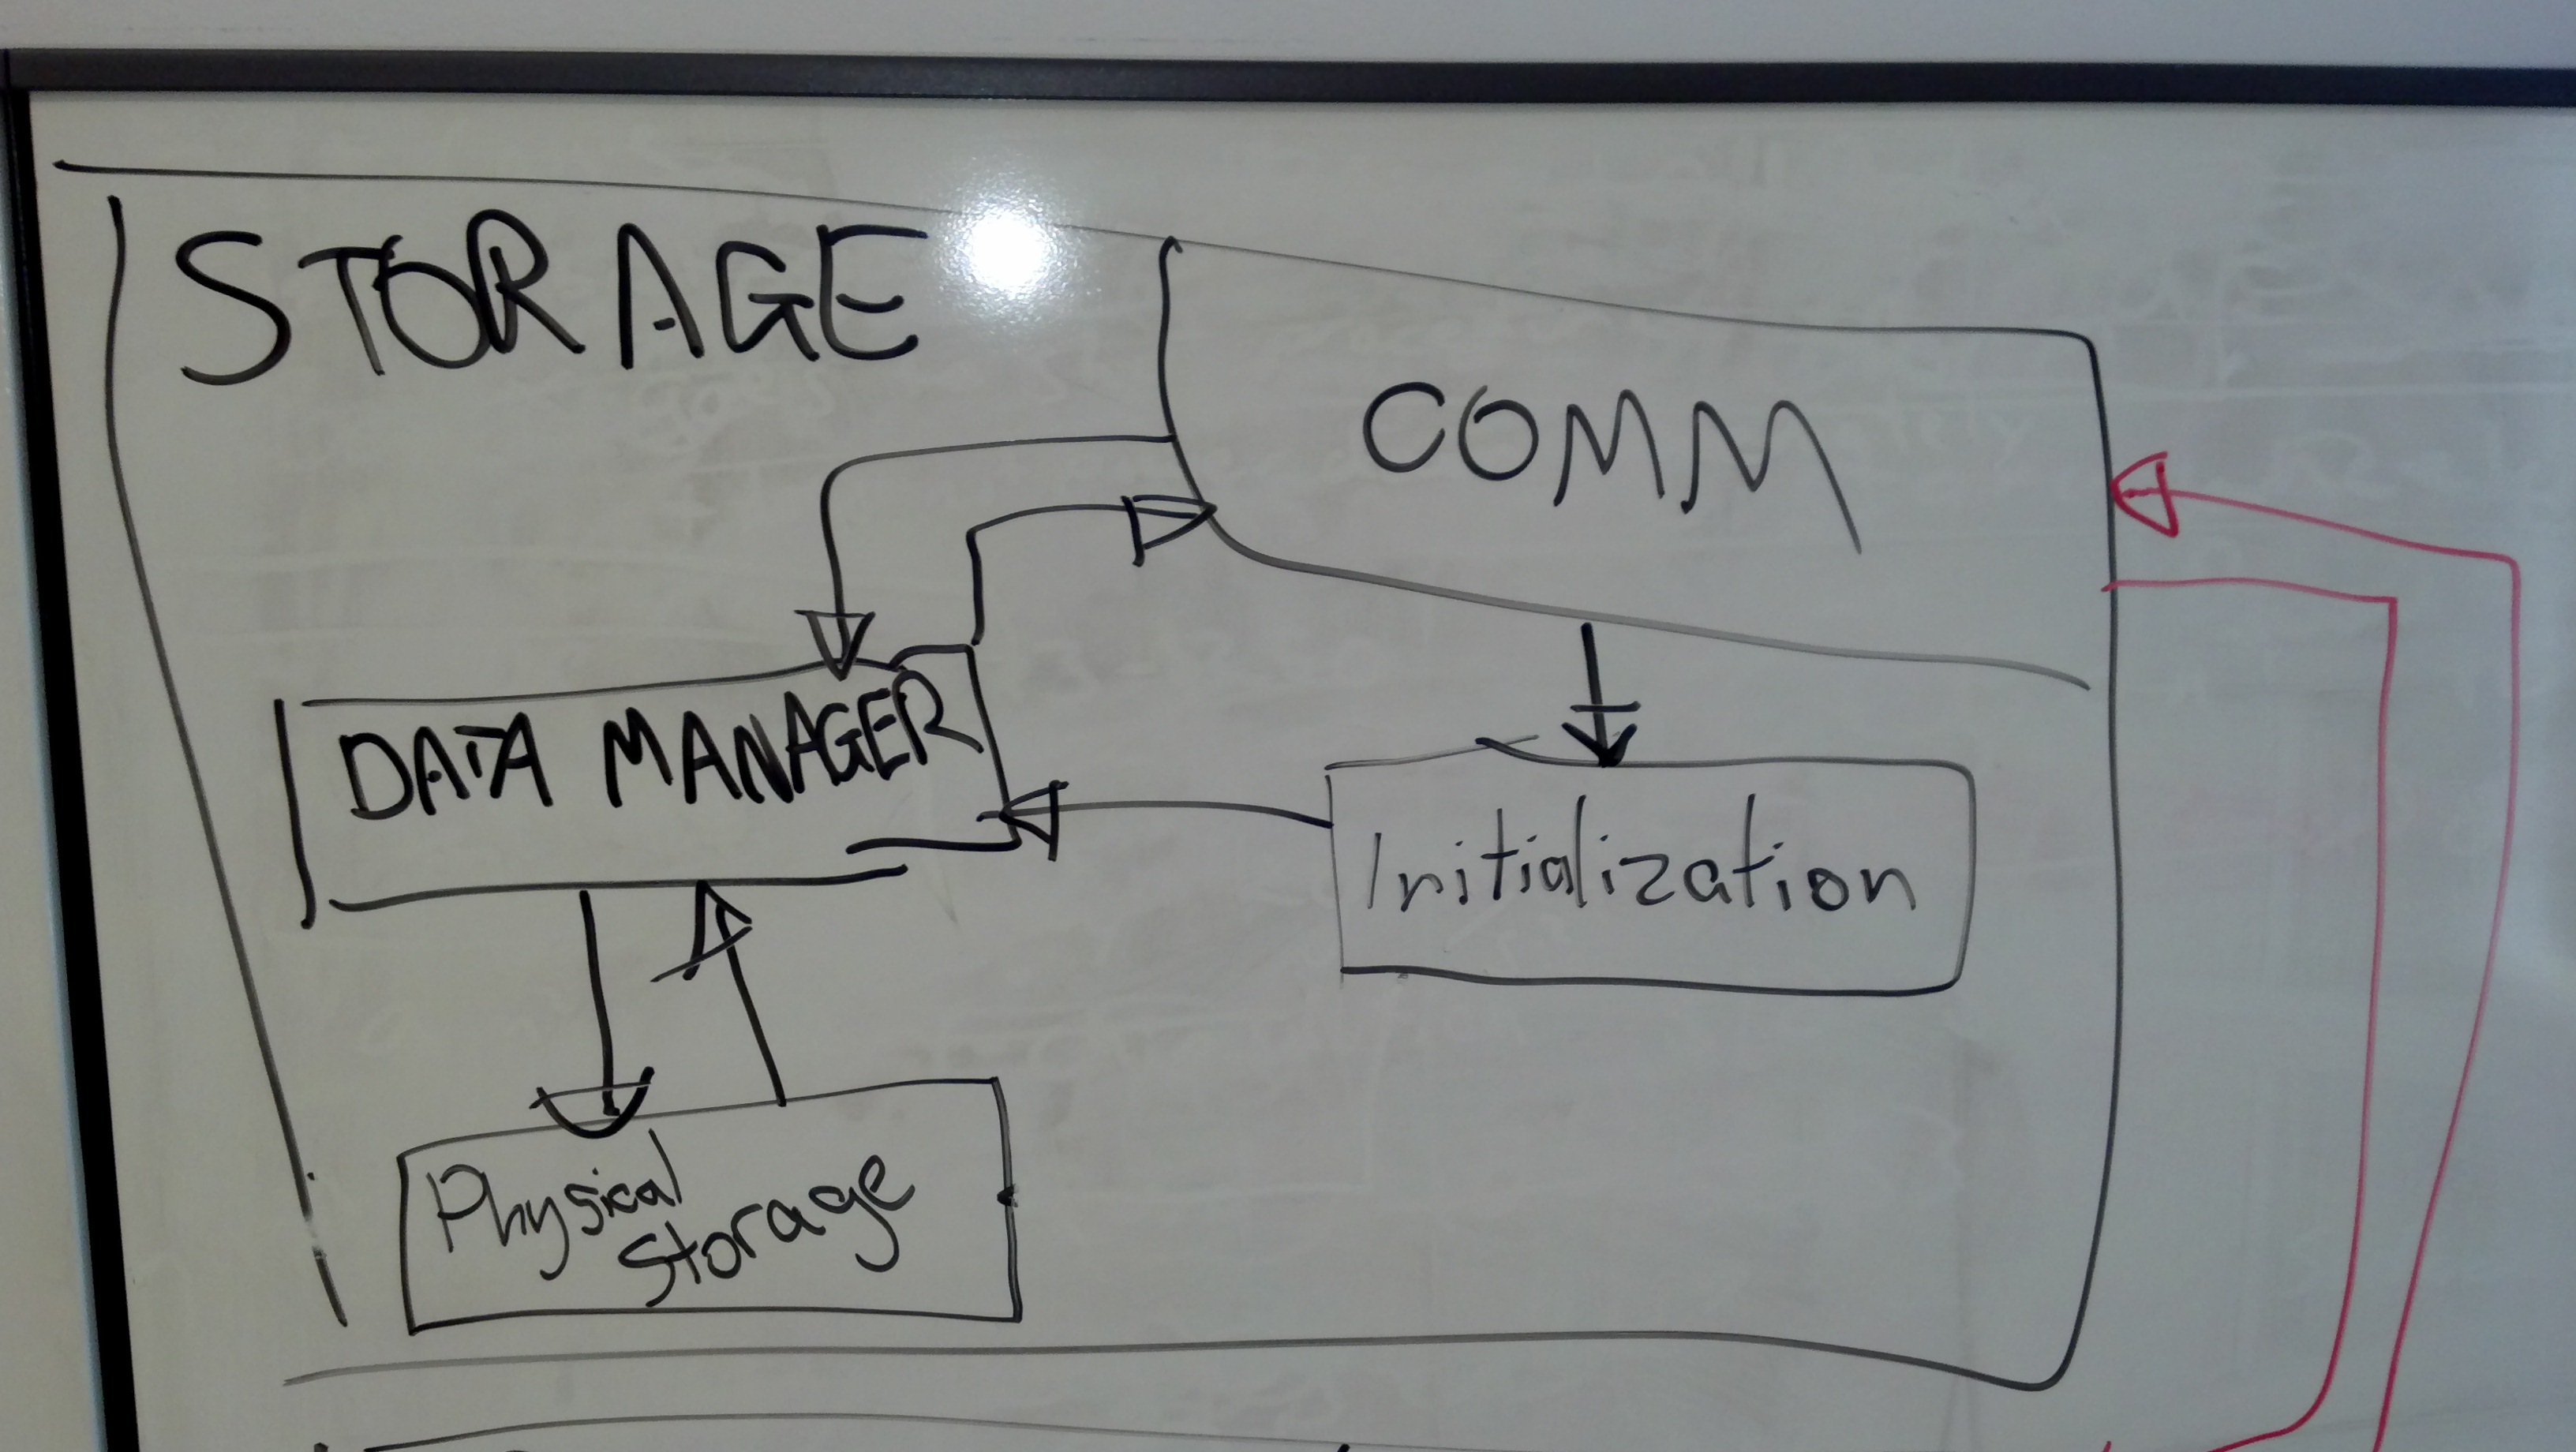 STORAGE
COMM
DATA MANAGER
Initialization
Physical
Storage